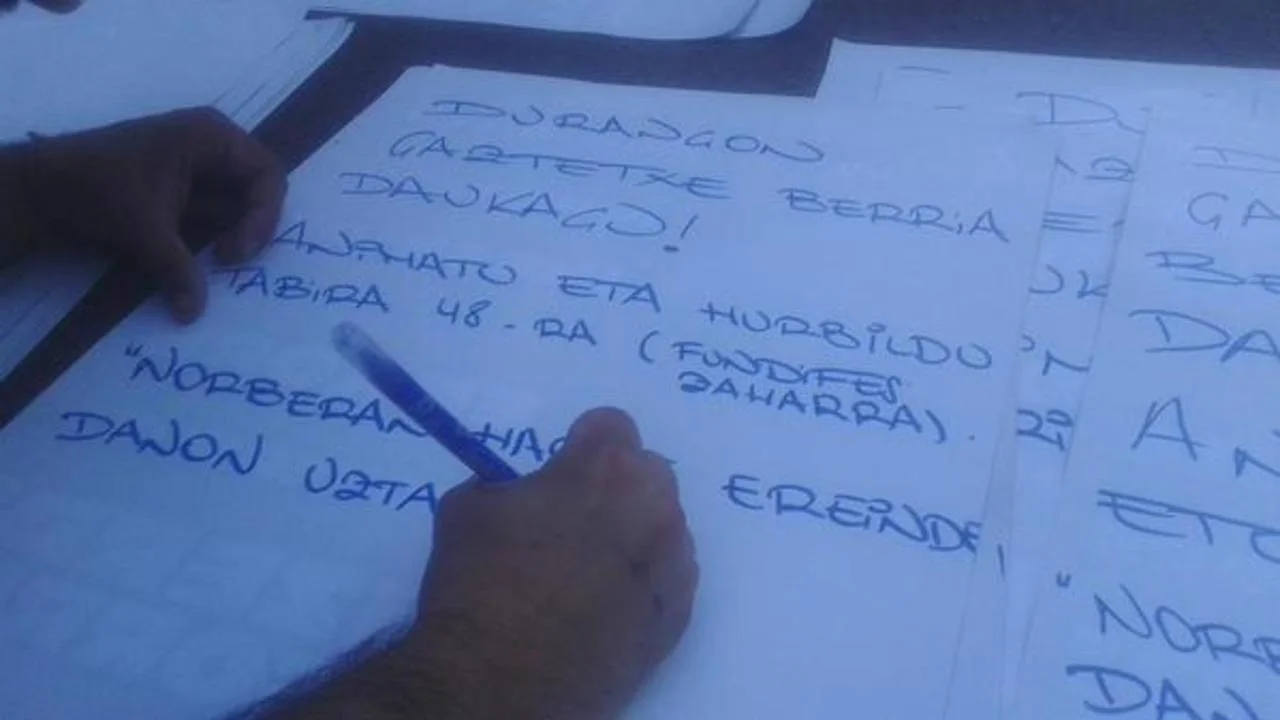 DURANGON
GAZTETXE BERRIA
DAUKAGU!
ANIMATU ETA HURBILDU
TABIRA 48-RA (FUNDIFES
ZAHARRA).
"NORBERAN EREINDA,
DANON UZTA
GA
BE
DA
"NORB
DAN